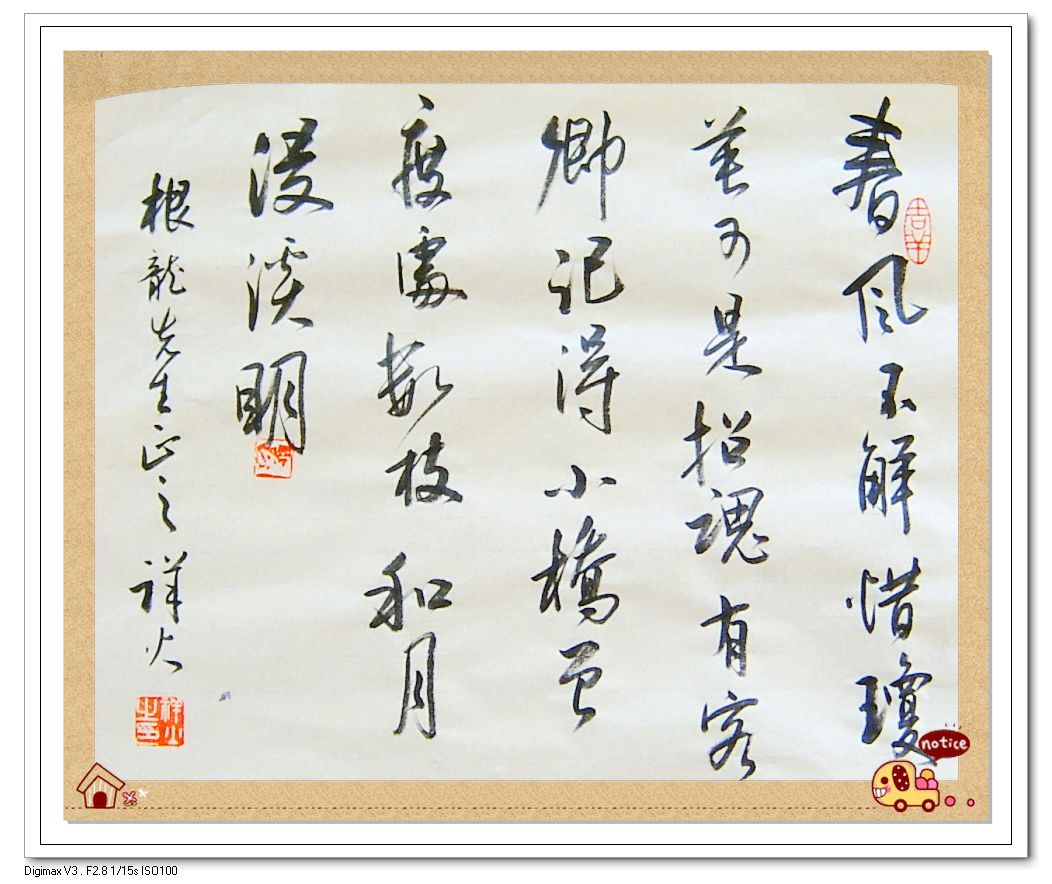 春風不解惜瓊
英可是招魂有客
卿記得小橋曾
度處數枝和月
浸溪明
根龍先生正之 祥火
notice
Digimax V3 . F2.8 1/15s ISO100